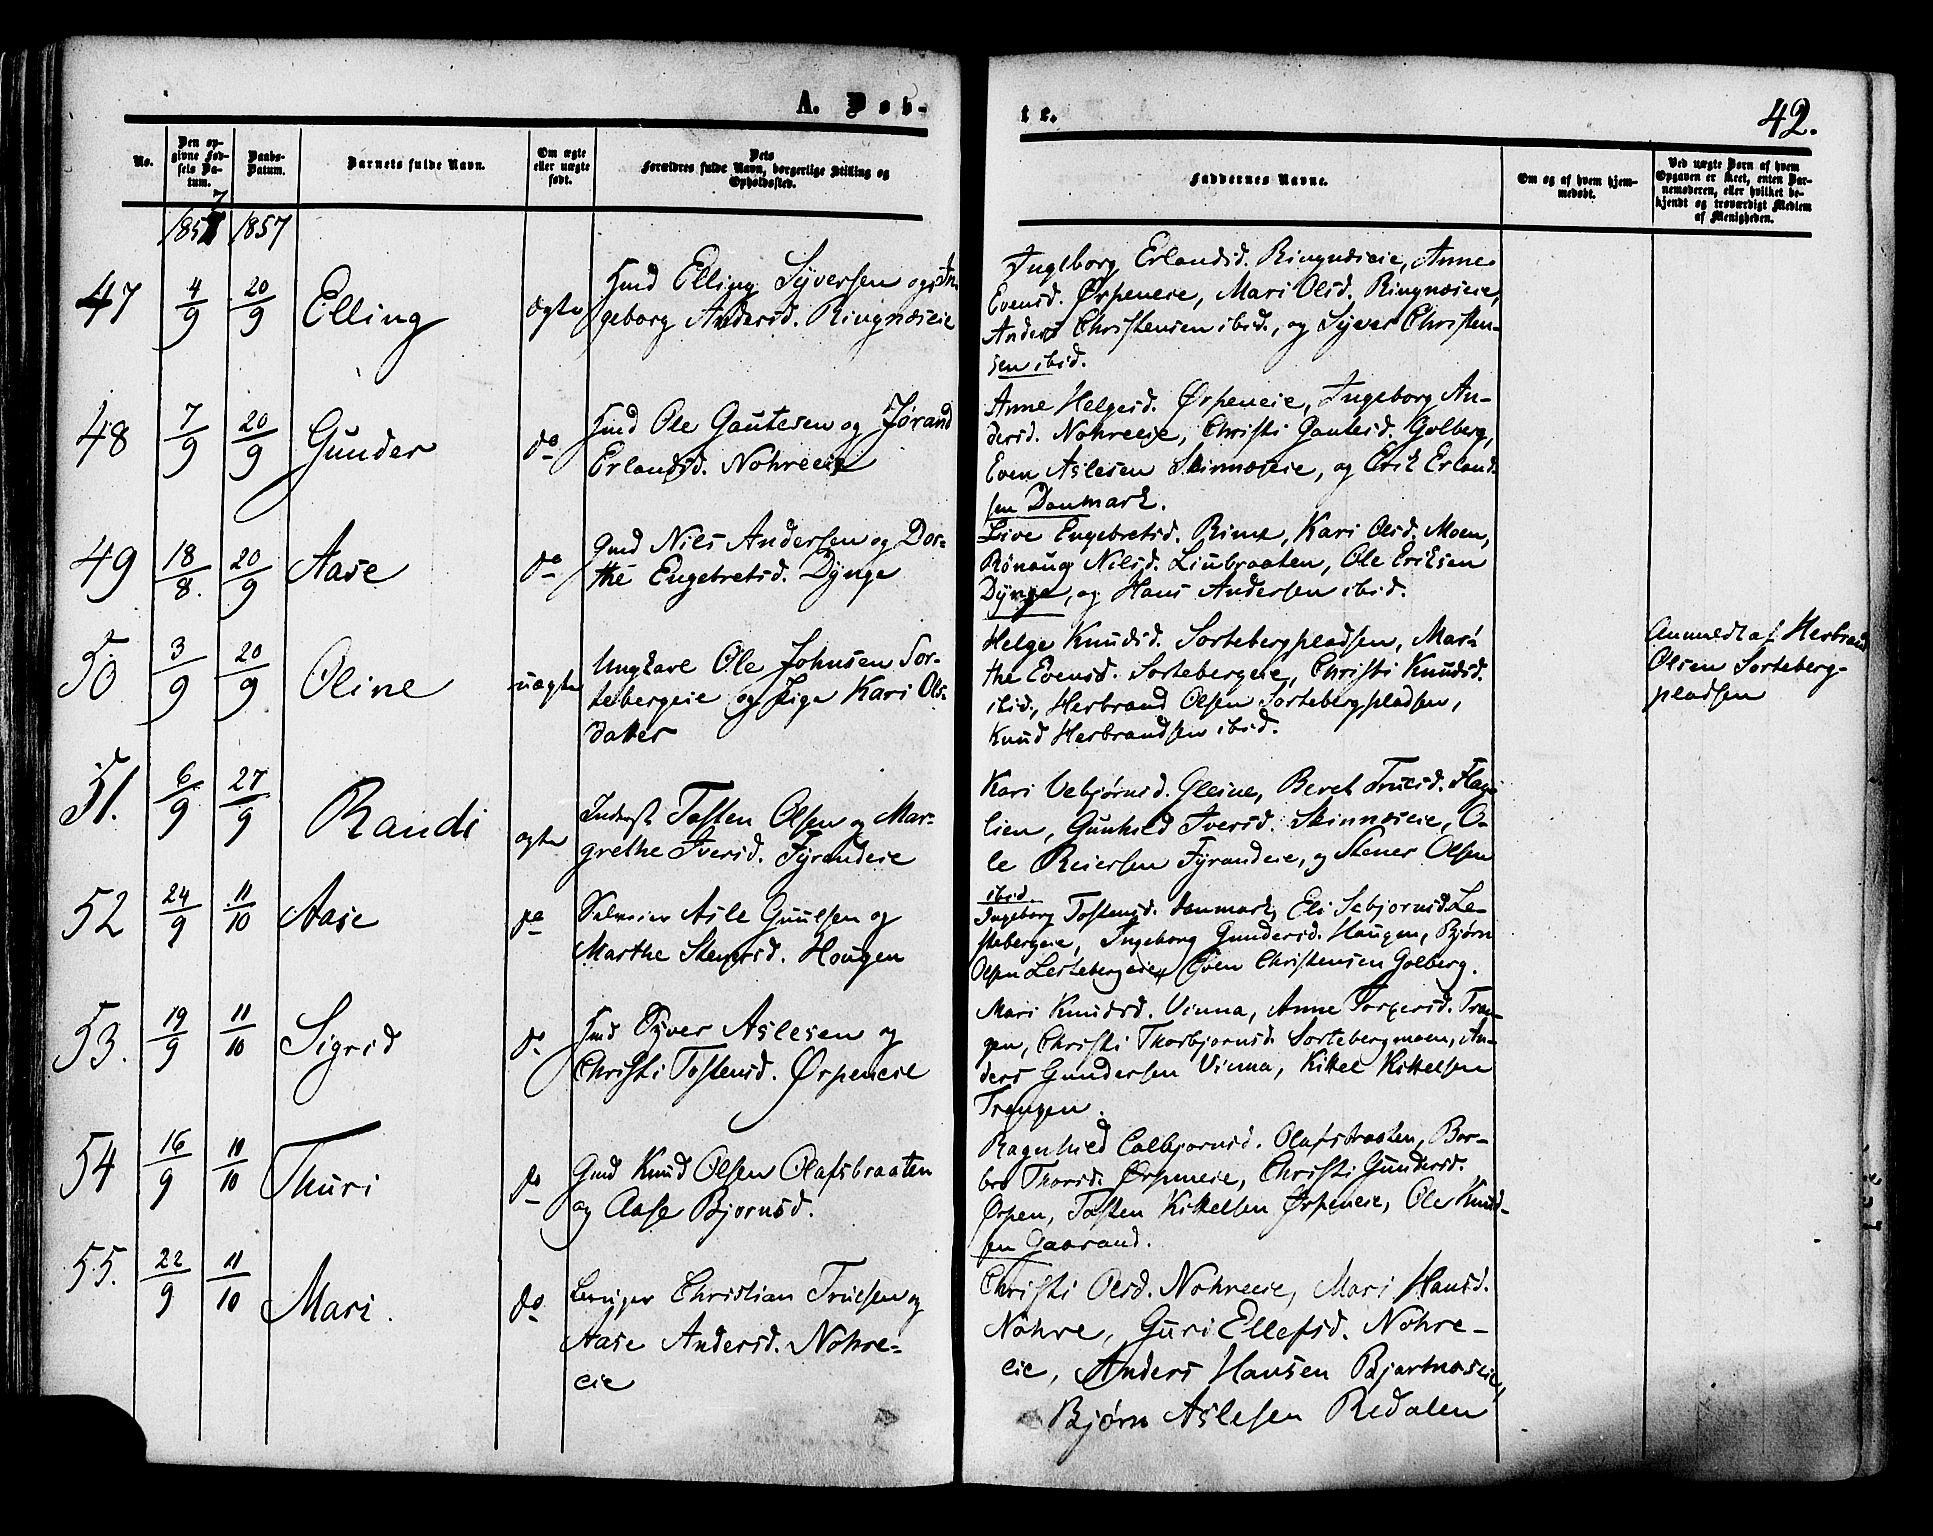 A. Døb-
te.
42.
No.
Den op-
givne Fød-
sels Da-
tum.
Daabs-
Datum.
Barnets fulde Navn.
Om ægte
eller uægte
født.
Dets
Forældres fulde Navn, borgerlige Stilling og
Opholdssted.
Faddernes Navne.
Om og af hvem hjem-
medøbt.
Ved uægte Børn af hvem
Opgaven er skeet, enten Bar-
nemoderen, eller hvilket be-
kjendt og troværdigt Medlem
af Menigheden.
1857 1857
47 4/9 20/9 Elling ægte Hmd Elling Syversen og In-
geborg Andersd. Ringnæseie
Ingeborg Erlandsd. Ringnæseie, Anne
Evensd. Ørpeneie, Mari Olsd. Ringnæseie,
Anders Christensen ibid., og Syver Christen-
sen ibid.
48 7/9 20/9 Gunder do Hmd Ole Gautesen og Jørand
Erlandsd. Nohreeie
Anne Helgesd. Ørpeneie, Ingeborg An-
dersd. Nohreeie, Christi Gautesd. Golberg,
Even Aslesen Skinnæseie, og Erik Erland-
sen Danmark.
49 18/8. 20/9 Aase do Gmd Nils Andersen og Dor-
the Engebretsd. Dynge
Live Engebretsd. Rime, Kari Olsd. Moen,
Rønaug Nilsd. Liubraaten, Ole Eriksen
Dynge, og Hans Andersen ibid.
50 3/9 20/9 Oline uægte Ungkarl Ole Johnsen Sor-
tebergeie og Pige Kari Ols-
datter
Helge Knudsd. Sortebergpladsen, Mar-
the Evensd. Sortebergeie, Christi Knudsd.
ibid., Herbrand Olsen Sortebergpladsen,
Knud Herbrandsen ibid.
Anmeldt af Herbrand
Olsen Sorteberg-
pladsen
51. 6/9 27/9 Randi ægte Inderst Tosten Olsen og Mar-
grethe Iversd. Fyrandeie
Kari Vebjørnsd. Gleine, Beret Truesd. Flage
lien, Gunhild Iversd. Skinnæseie, O-
le Reiersen Fyrandeie, og Stener Olsen
ibid.
52 24/9 11/10 Aase do Selveier Asle Gunlsen og
Marthe Stenersd. Hougen
Ingeborg Tostensd. Danmark, Eli Sebjørnsd. Le-
stebergeie, Ingeborg Gundersd. Haugen, Bjørn
Olsen Lestebergeie, Even Christensen Golberg.
53. 19/9 11/10 Sigrid do Hmd Syver Aslesen og
Christi Tostensd. Ørpeneie
Mari Knudsd. Vinna, Anne Torgersd. Tran-
gen, Christi Thorbjornsd. Sortebergmoen, An-
ders Gundersen Vinna, Kittel Kittelsen
Trangen.
54 16/9 11/10 Thuri do Gmd Knud Olsen Olafsbraaten
og Aase Bjornsd.
Ragnhild Colbjornsd. Olafsbraaten, Bar-
bro Thorsd. Ørpeneie, Christi Gundersd.
Ørpen, Tosten Kittelsen Ørpeneie, Ole Knud-
sen Gaarand.
55. 22/9 11/10 Mari. do Leruger Christian Truelsen og
Aase Andersd. Nohre-
eie
Christi Olsd. Nohreeie, Mari Hansd.
Nohre, Guri Ellefsd. Nohre-
eie, Anders Hansen Bjertnæseie,
Bjørn Aslesen Redalen